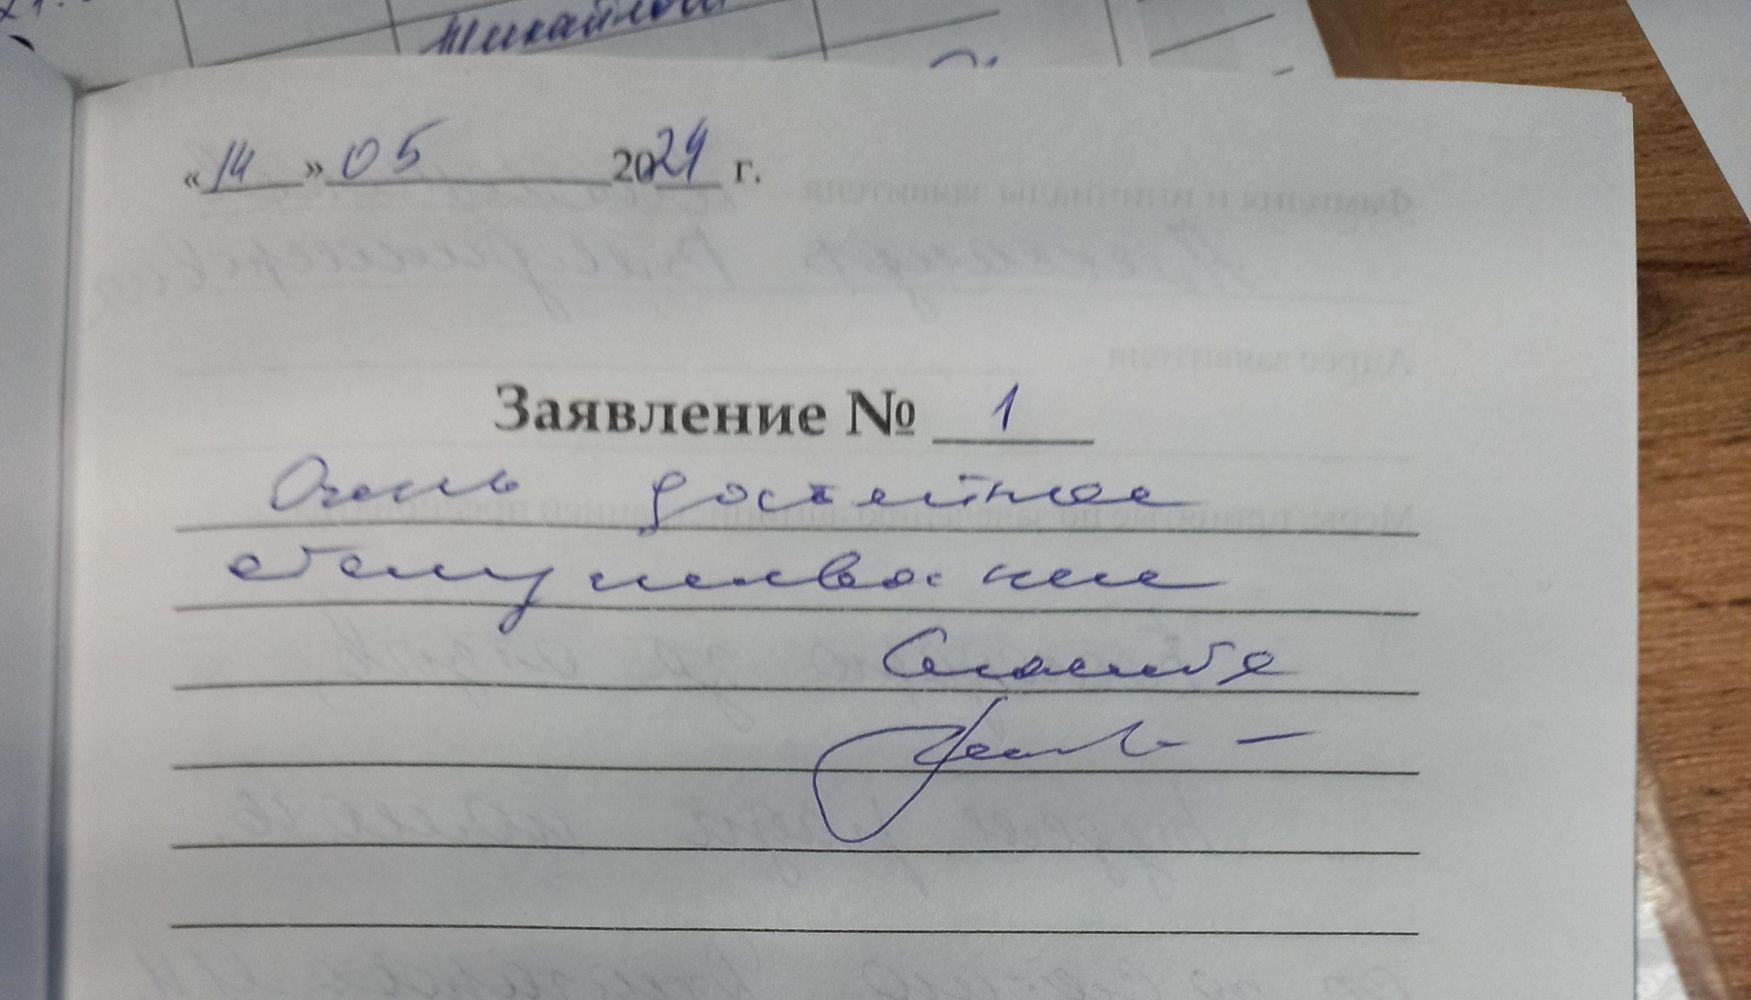 Михайлов
«14» 05 2024 г.
Заявление № 1
Очень достойное
обслуживание
Спасибо